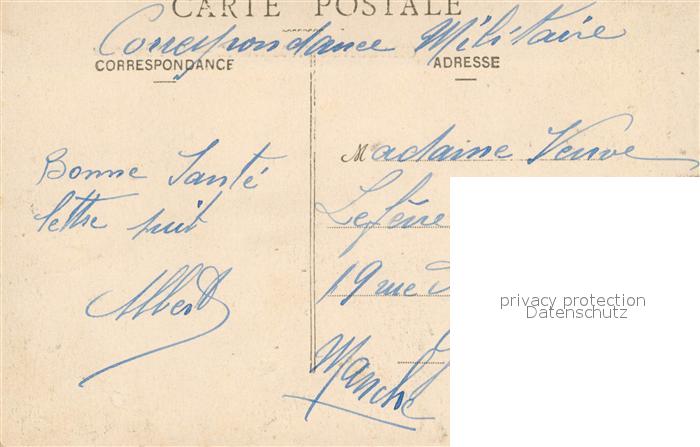 CARTE POSTALE
Correspondance Militaire
CORRESPONDANCE
ADRESSE
Bonne Santé
lettre suit
Albert
Madame Veuve
Lefèvre
19 rue
Manche
privacy protection
Datenschutz